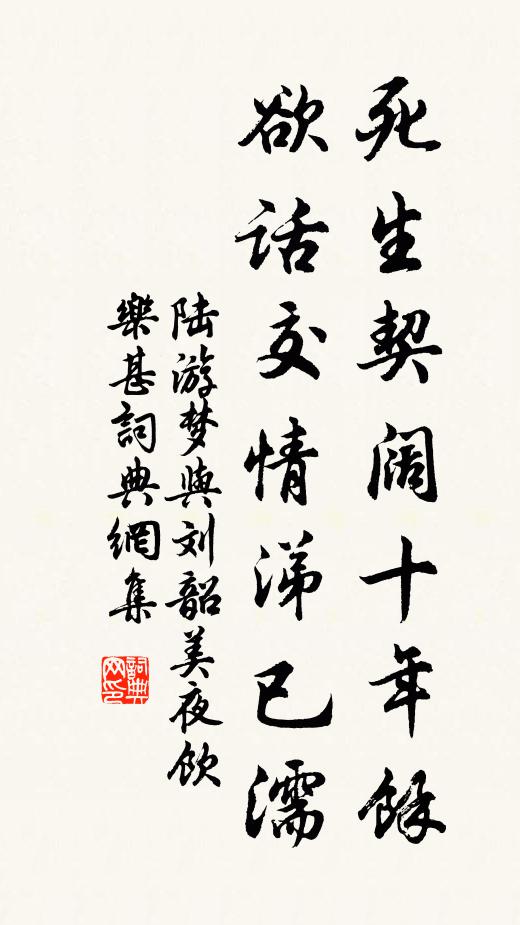 死生契阔十年馀
欲话交情涕已濡
陆游梦与刘韶美夜饮
樂甚詞典網集
詞典网印